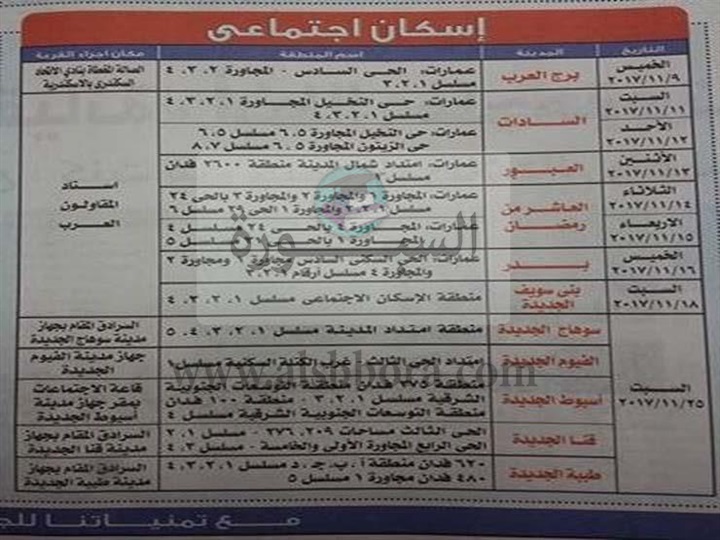 إسكان اجتماعى
التاريخ المدينة اسم المنطقة مكان اجراء القرعة
الخميس ٢٠١٧/١١/٩ برج العرب عمارات: الحى السادس - المجاورة ٢، ٣، ٤ الصالة المغطاة بنادى الاتحاد
مسلسل ١، ٢، ٣ السكندرى بالاسكندرية
السبت ٢٠١٧/١١/١١ السادات عمارات: حى النخيل المجاورة ١، ٢، ٣، ٤
مسلسل ١، ٢، ٣، ٤
الأحد ٢٠١٧/١١/١٢ عمارات: حى النخيل المجاورة ٥، ٦ مسلسل ٥، ٦
حى الزيتون المجاورة ٥، ٦ مسلسل ٧، ٨
الأثنين ٢٠١٧/١١/١٣ العبور عمارات: امتداد شمال المدينة منطقة ٢٦٠٠ فدان
استاد
المقاولون
العرب
الثلاثاء ٢٠١٧/١١/١٤ العاشر من رمضان عمارات: المجاورة والمجاورة ٢ والمجاورة ٣ بالحى ٢٤
والمجاورة ١ الحى مسلسل ٦
الاربعاء ٢٠١٧/١١/١٥ بالحى ٢٤ مسلسل ٤
المجاورة ١ بالحى مسلسل ٥
الخميس ٢٠١٧/١١/١٦ بدر عمارات: الحى السكنى السادس مجاورة ومجاورة ٢
والمجاورة ٤ مسلسل أرقام
السبت ٢٠١٧/١١/١٨ بنى سويف الجديدة منطقة الإسكان الاجتماعى مسلسل ١، ٢، ٣، ٤
السبت ٢٠١٧/١١/٢٥ سوهاج الجديدة منطقة امتداد المدينة مسلسل ١، ٢، ٣، ٤، ٥ السرادق المقام بجهاز
مدينة سوهاج الجديدة
الفيوم الجديدة امتداد الحى الثالث: غرب الكتلة السكنية مسلسل ١ جهاز مدينة الفيوم
الجديدة
أسيوط الجديدة منطقة ٧٧٥ فدان منطقة التوسعات الجنوبية قاعة الاجتماعات
الشرقية مسلسل ١، ٢، ٣ - منطقة ١٠٠ فدان بمقر جهاز مدينة
منطقة التوسعات الجنوبية الشرقية مسلسل ٤ أسيوط الجديدة
قنا الجديدة الحى الثالث مساحات ٢٠٩، ٢٧٦ - مسلسل ١، ٢ السرادق المقام بجهاز
الحى الرابع المجاورة الأولى والخامسة - مسلسل ٣، ٤ مدينة قنا الجديدة
طيبة الجديدة ٦٢٠ فدان منطقة أ، ب، ج، د مسلسل ١، ٢، ٣، ٤ السرادق المقام بجهاز
٤٨٠ فدان مجاورة ١ مسلسل ٥ مدينة طيبة الجديدة
السبورة
www.alshbora.com
مع تمنياتنا للج